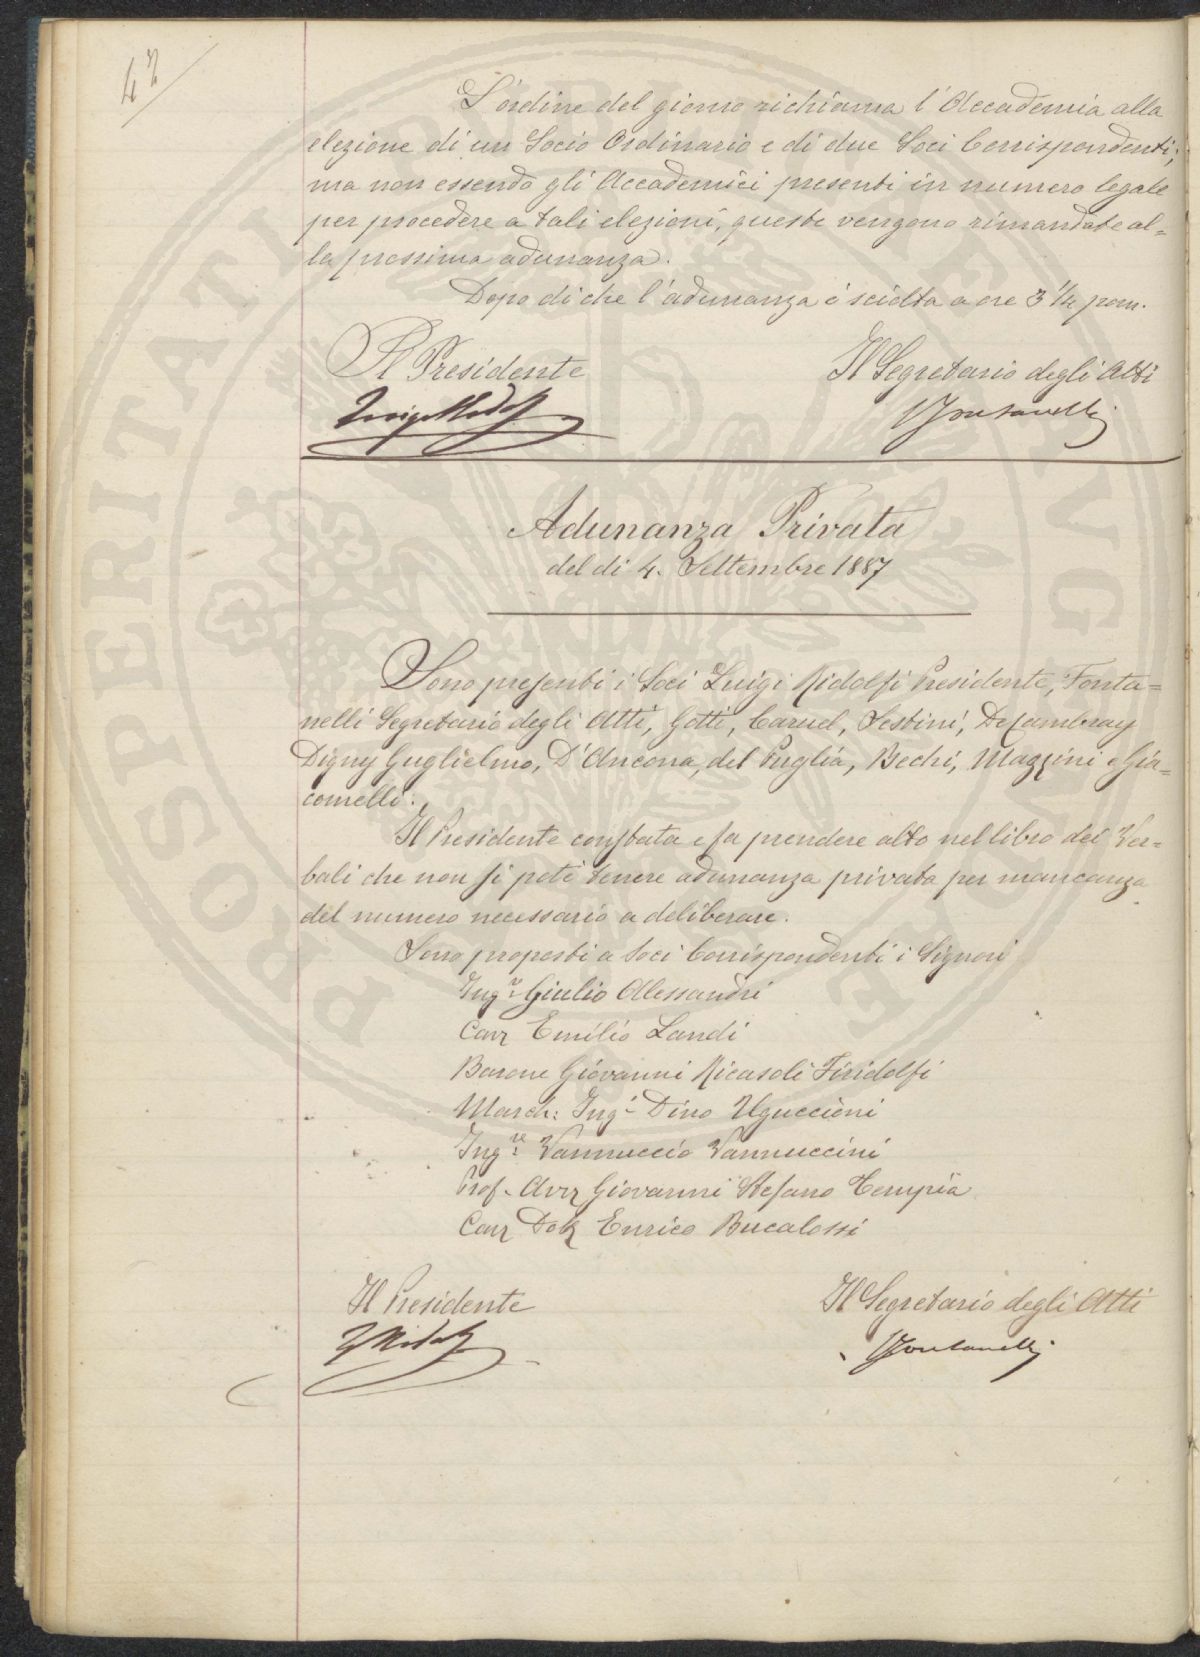 42
L'ordine del giorno richiama l'Accademia alla
elezione di un Socio Ordinario e di due Soci Corrispondenti;
ma non essendo gli Accademici presenti in numero legale
per procedere a tali elezioni, queste vengono rimandate al=
la prossima adunanza.
Dopo di che l'adunanza è sciolta a ore 3 1/4 pom.
Il Presidente
Il Segretario degli Atti
Luigi Ridolfi
Fontanelli
Adunanza Privata
del dì 4. Settembre 1887
Sono presenti i Soci Luigi Ridolfi Presidente, Fonta=
nelli Segretario degli Atti, Gotti, Caruel, Sestini, De Cambray
Digny Guglielmo, D'Ancona, del Puglia, Bechi, Mazzini e Gia=
comelli.
Il Presidente constata e fa prendere atto nel libro dei Ver=
bali che non si potè tenere adunanza privata per mancanza
del numero necessario a deliberare.
Sono proposti a Soci Corrispondenti i Signori
Ing.re Giulio Alessandri
Cav Emilio Landi
Barone Giovanni Ricasoli Firidolfi
March: Ing.e Dino Uguccioni
Ing.re Vannuccio Vannuccini
Prof. Avv Giovanni Stefano Tempia
Cav Dott Enrico Bucalossi
Il Presidente
Il Segretario degli Atti
L Ridolfi
Fontanelli
PROSPERITATI